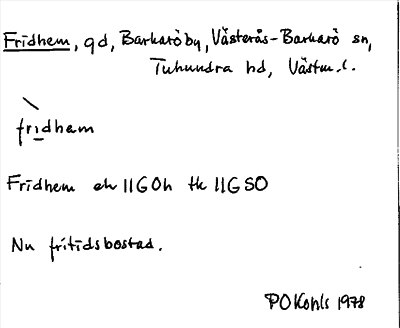 Fridhem, gd, Barkarö by, Västerås-Barkarö sn,
Tuhundra hd, Västm. l.
fridhem
Fridhem ek 11G 0h tk 11G SO
Nu fritidsbostad.
P O Kohls 1978